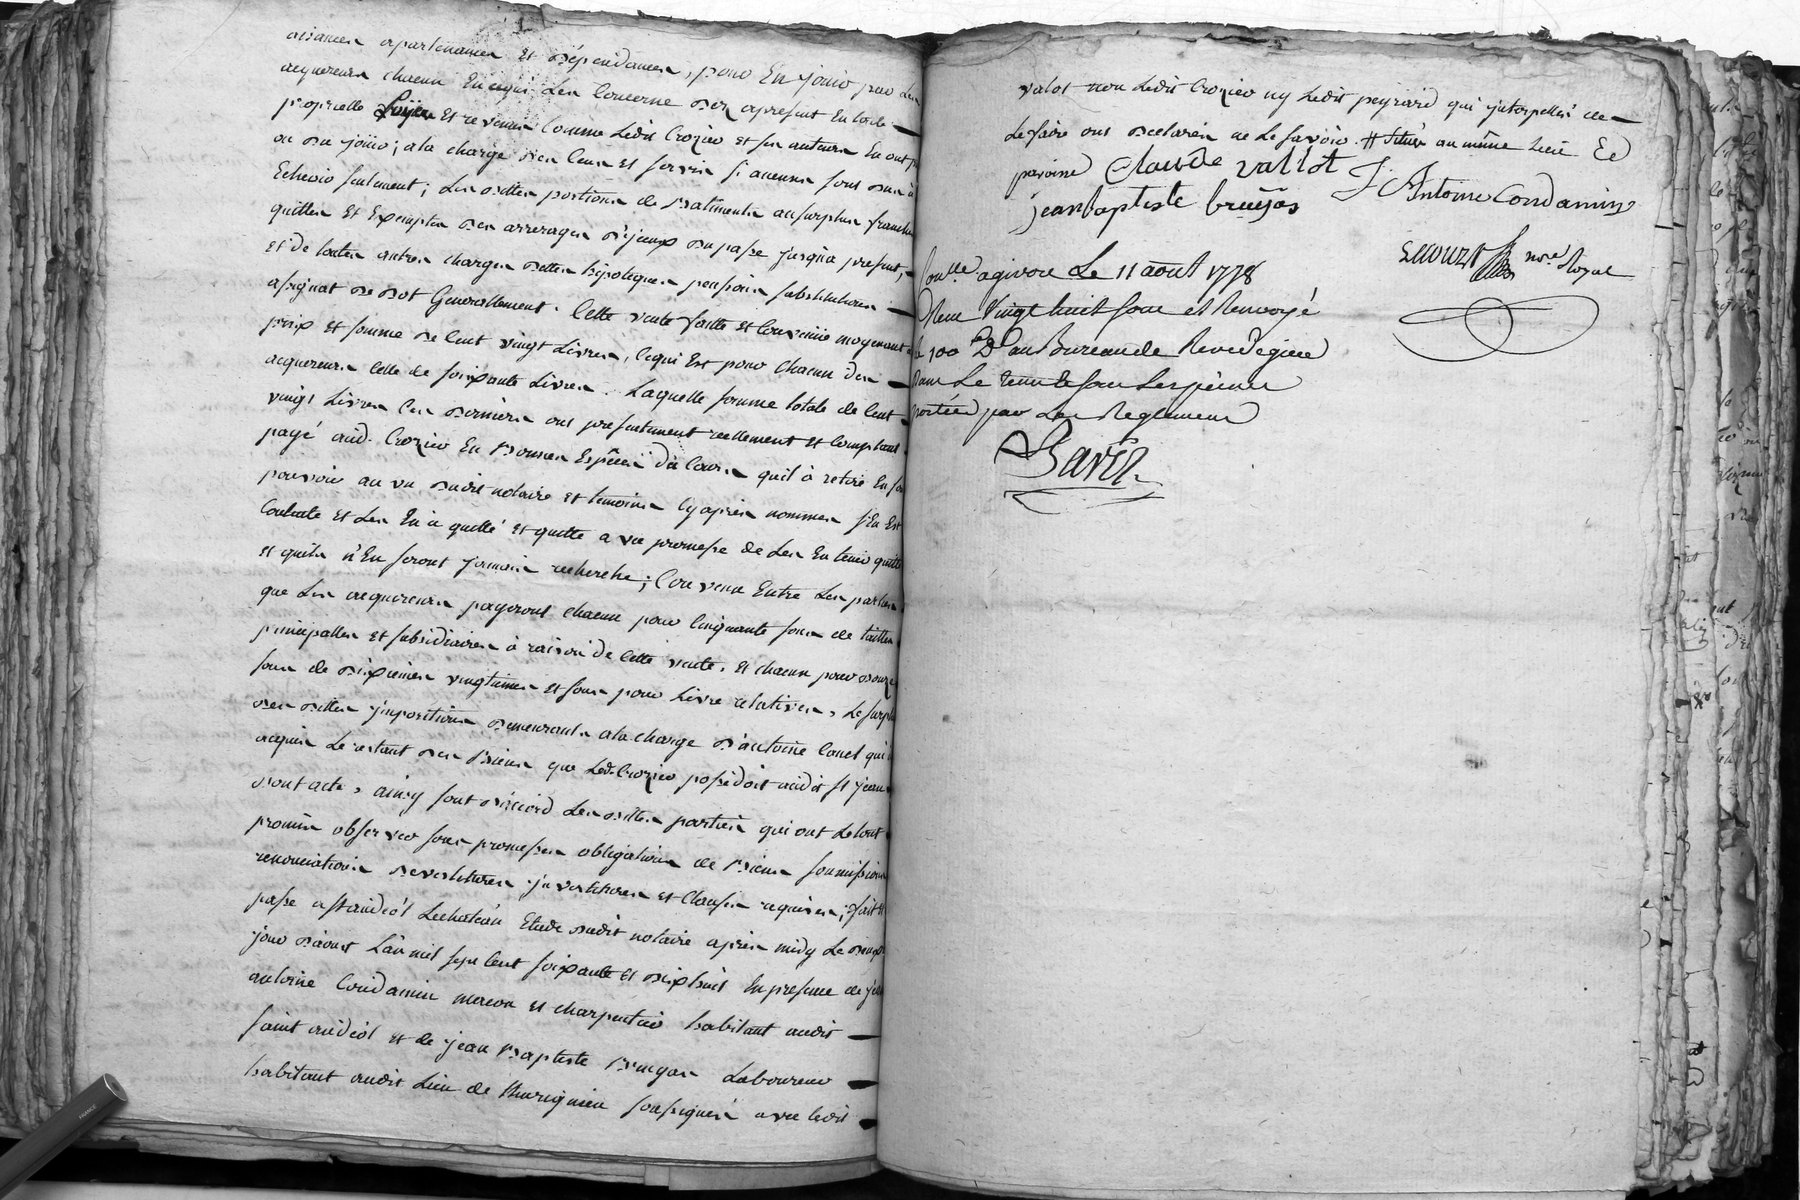 aisances apartenances Et Dependances, pour En jouir par Les
acquereurs chacun En cequi Les Concerne Dez apresent En toute
proprietté fruits Et revenus Comme Ledit Crozier et ses auteurs En ont
ou du jouir; ala charge des Cens et servis si aucuns sont dus à
Echeoir seulement; Les dittes portions de Batiments au surplus franches
quittes Et Exemptes des arrerages D'iceux du passé jusqu'a present,
et de toutes autres charges dettes hipoteques pensions substitutions
assignat de dot Generallement. Cette vente faitte et Convenüe moyenant
prix et somme de Cent vingt Livres, cequi Est pour Chacun des
acquereurs Celle de soixante Livres. Laquelle somme totale de Cent
vingt Livres Ces derniers ont presentement reellement et Comptant
payé aud. Crozier En Bonnes Espèces du Cours quil à retiré En son
pouvoir au vu dudit notaire et temoins Cy après nommés s'En Est
Contenté et Les En a quitté et quitte avec promesse de Les En tenir quitte
et quils n'En seront jamais recherché; Convenu Entre Les parties
que Les acquereurs payeront chacun pour Cinquante sous de tailles
principalles et subsidiaires à raison de Cette vente. et chacun pour Douze
sous de dixiemes vingtiemes et sous pour Livre relatives, Le surplus
des dittes jmpositions demeurants ala charge D'antoine Conel qui à
acquis Le restant des Biens que Led. Crozier possédoit audit St jean
Dont acte, ainsy sont D'accord Les dittes parties qui ont Le tout
promis observer sous promesses obligations de Biens soumissions
renonciations devestitures jnvestitures et Clauses requises; fait et
passé a St andéol Lechateau Etude dudit notaire après midy Le
jour d'aoust L'an mil sept Cent soixante et dix huit En presence de
antoine Condamin macon et charpentier habitant audit
saint andéol et de jean Baptiste Bruyas Laboureur
habitant audit Lieu de soussignés avec ledit
valot non Ledit Crozier ny Ledit peyrard qui jnterpellés de
Le faire ont declarés ne Le savoir. # situés au même Lieu Ed
Claude vallot J. Antoine Condamin
jean baptiste bruyas
not.e Royal
Con.lle agivors Le 11 aout 1778
Reçu Vingt huit sous et Renvoyé
le 100e D. au Bureau de Rivedegier
Dans Le tems & sous Les peines
portées par Les Reglemens